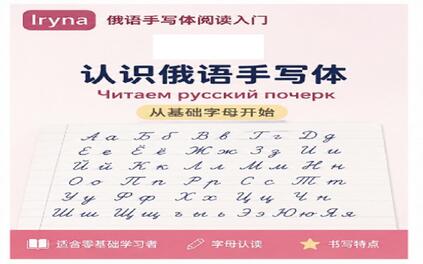 Iryna 俄语手写体阅读入门
认识俄语手写体
Читаем русский почерк
从基础字母开始
Аа Бб Вв Гг Дд
Ее Ёё Жж Зз Ии
Йй Кк Лл Мм Нн
Оо Пп Рр Сс Тт
Уу Фф Хх Цц Чч
Шш Щщ ъ ы ь Ээ Юю Яя
适合零基础学习者 字母认读 书写特点